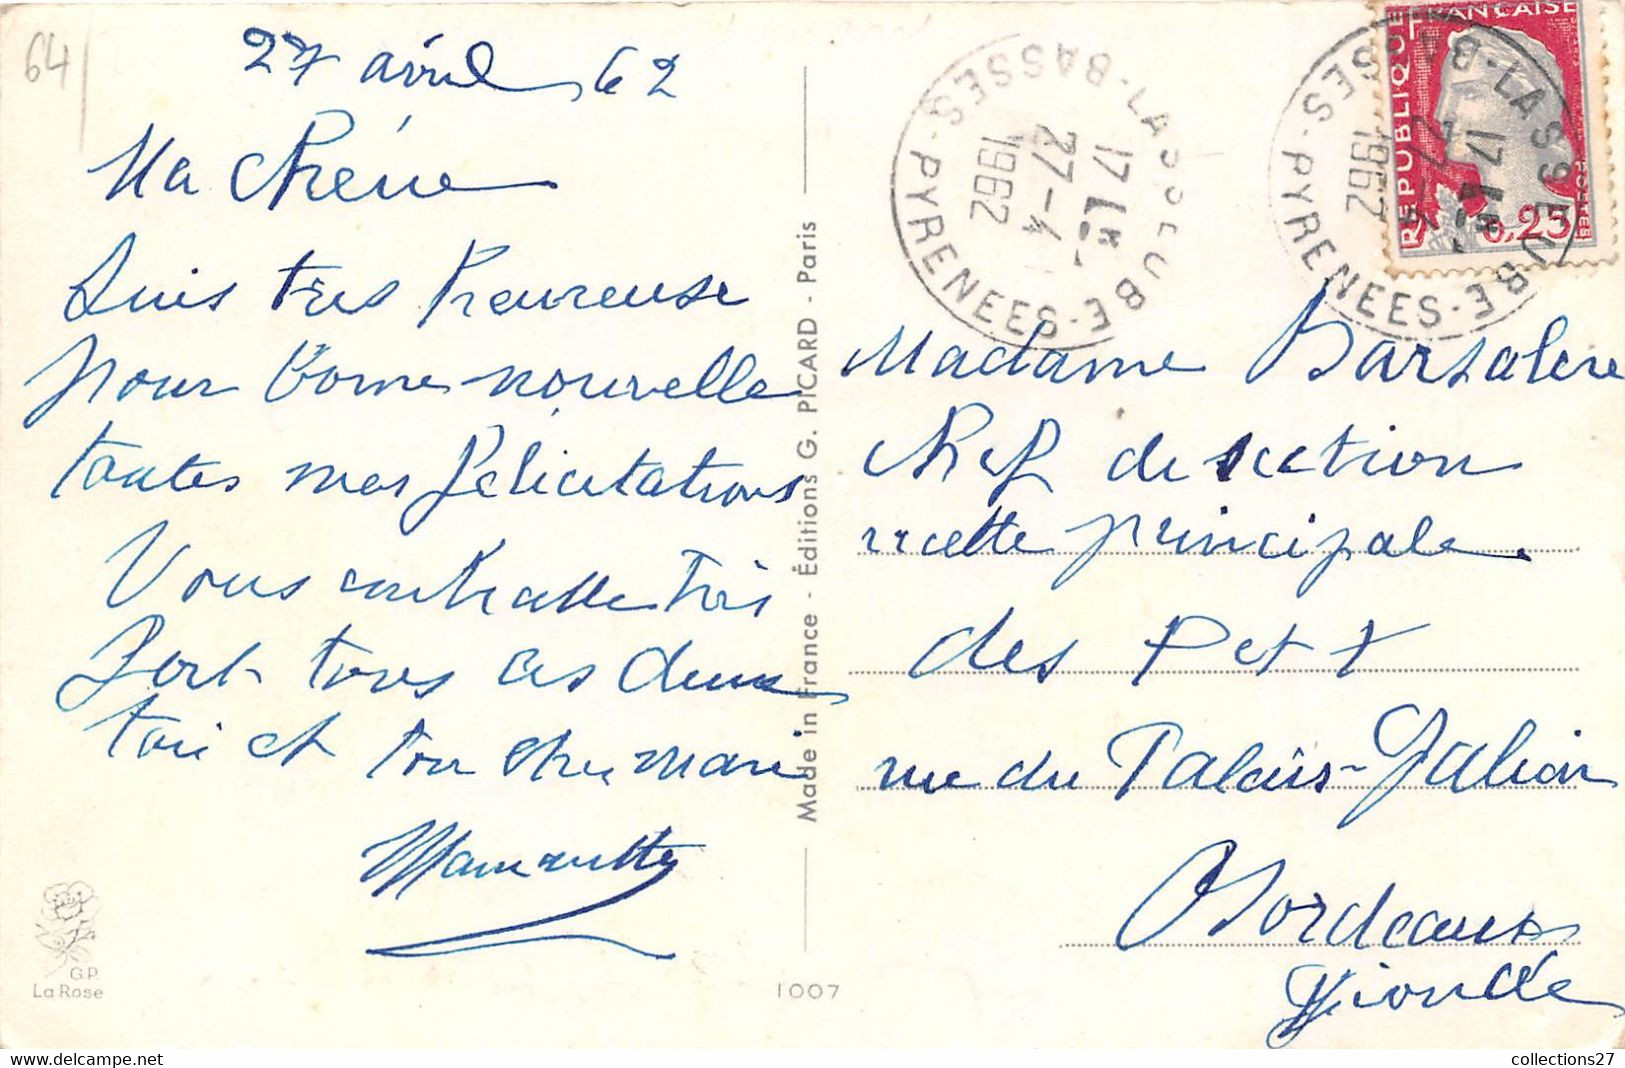 64
27 avril 62
Ma Chérie
Suis très heureuse
pour bonne nouvelle
toutes mes félicitations
Vous
Fort tous les deux
toi et ton cher mari
Made in France - Éditions G. PICARD - Paris
G.P.
La Rose
1007
BASSES-PYRENEES
17H
27-4
1962
REPUBLIQUE FRANÇAISE
0,25
BASSES-PYRENEES
17H
27-4
1962
Madame Barsalère
Chef de section
recette principale
des P et T
rue du Palais-Galien
Bordeaux
Gironde
collections27